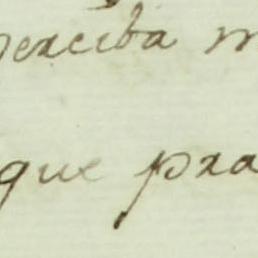 perciba m
que pra